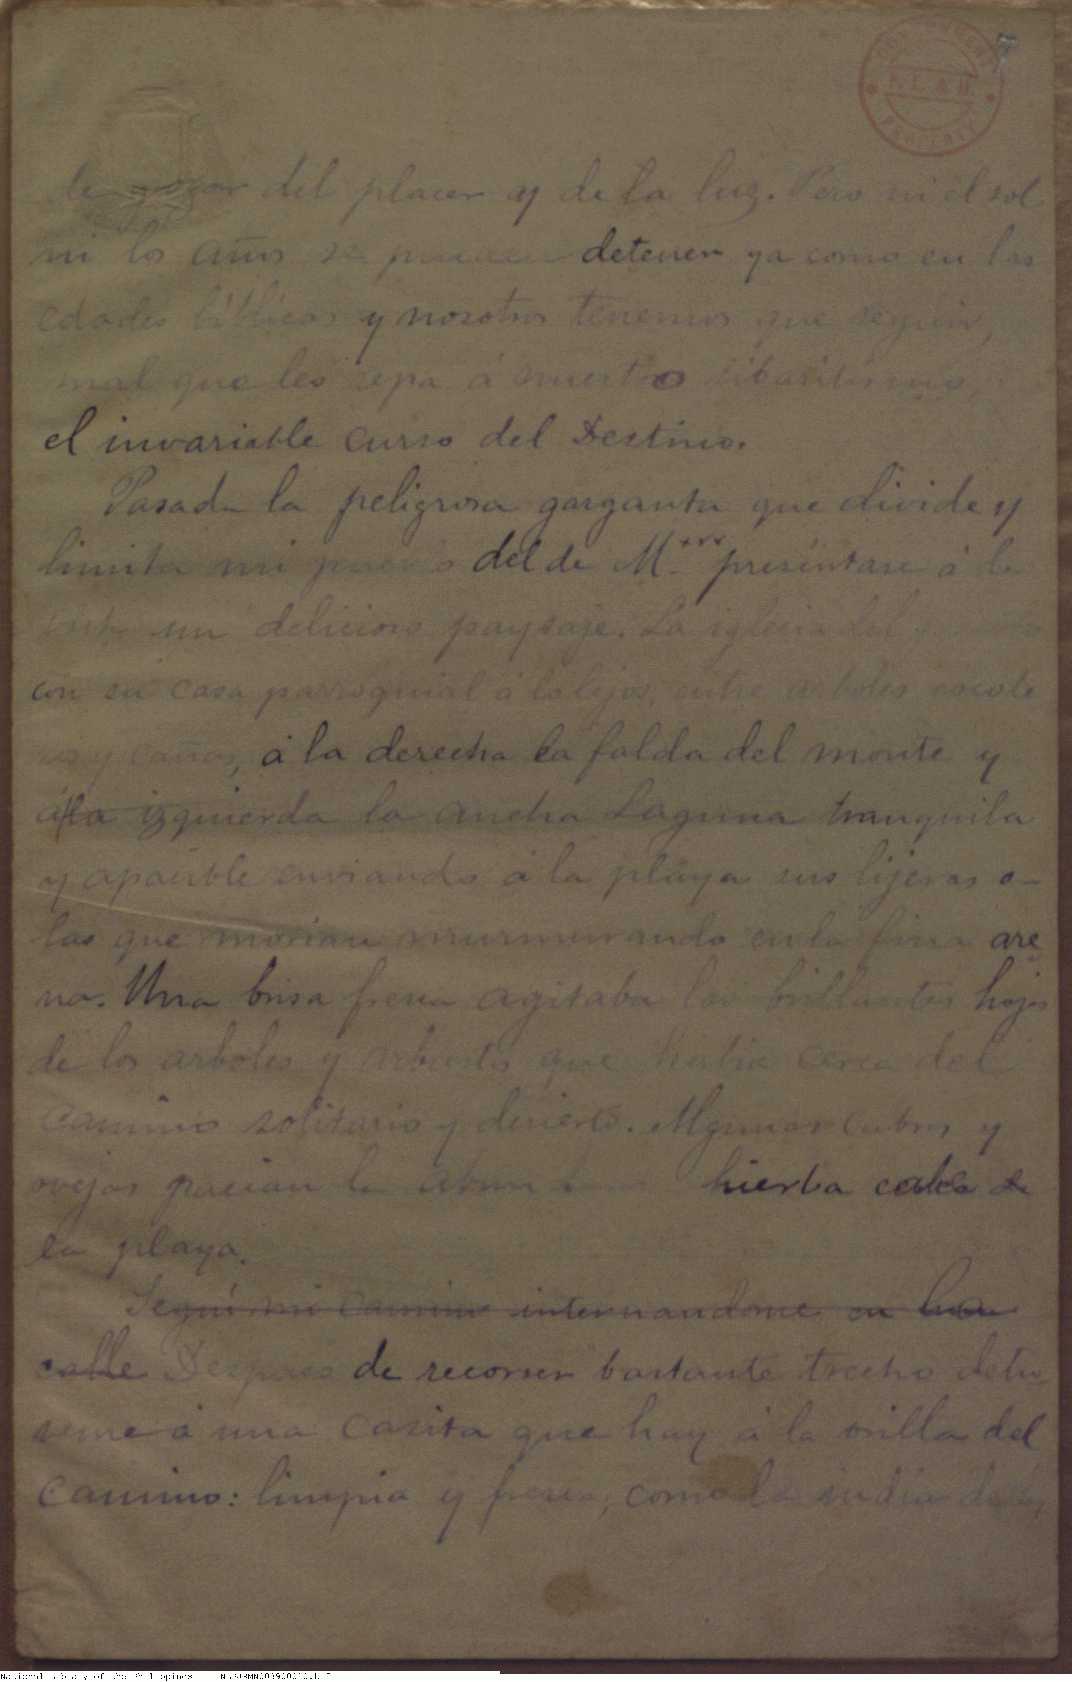 de gozar del placer y de la luz. Pero ni el sol
ni los años se pueden detener ya como en las
edades bíblicas y nosotros tenemos que seguir,
mal que les sepa á nuestro sibaritismo,
el invariable curso del Destino.
Pasada la peligrosa garganta que divide y
limita mi pueblo del de M*** preséntase á la
vista un delicioso paysaje. La iglesia del
con su casa parroquial á lo lejos, entre arboles cocote
ros y cañas, á la derecha la falda del monte y
á la izquierda la ancha Laguna tranquila
y apacible enviando á la playa sus lijeras o-
las que morian murmurando en la fina are
na. Una brisa fresca agitaba las brillantes hojas
de los arboles y arbustos que habia cerca del
camino solitario y desierto. Algunas cabras y
ovejas pacian la hierba cerca de
la playa.
Seguí mi camino internandome en
calle Despues de recorrer bastante trecho detu
veme á una casita que hay á la orilla del
camino: limpia y fresca, como la india